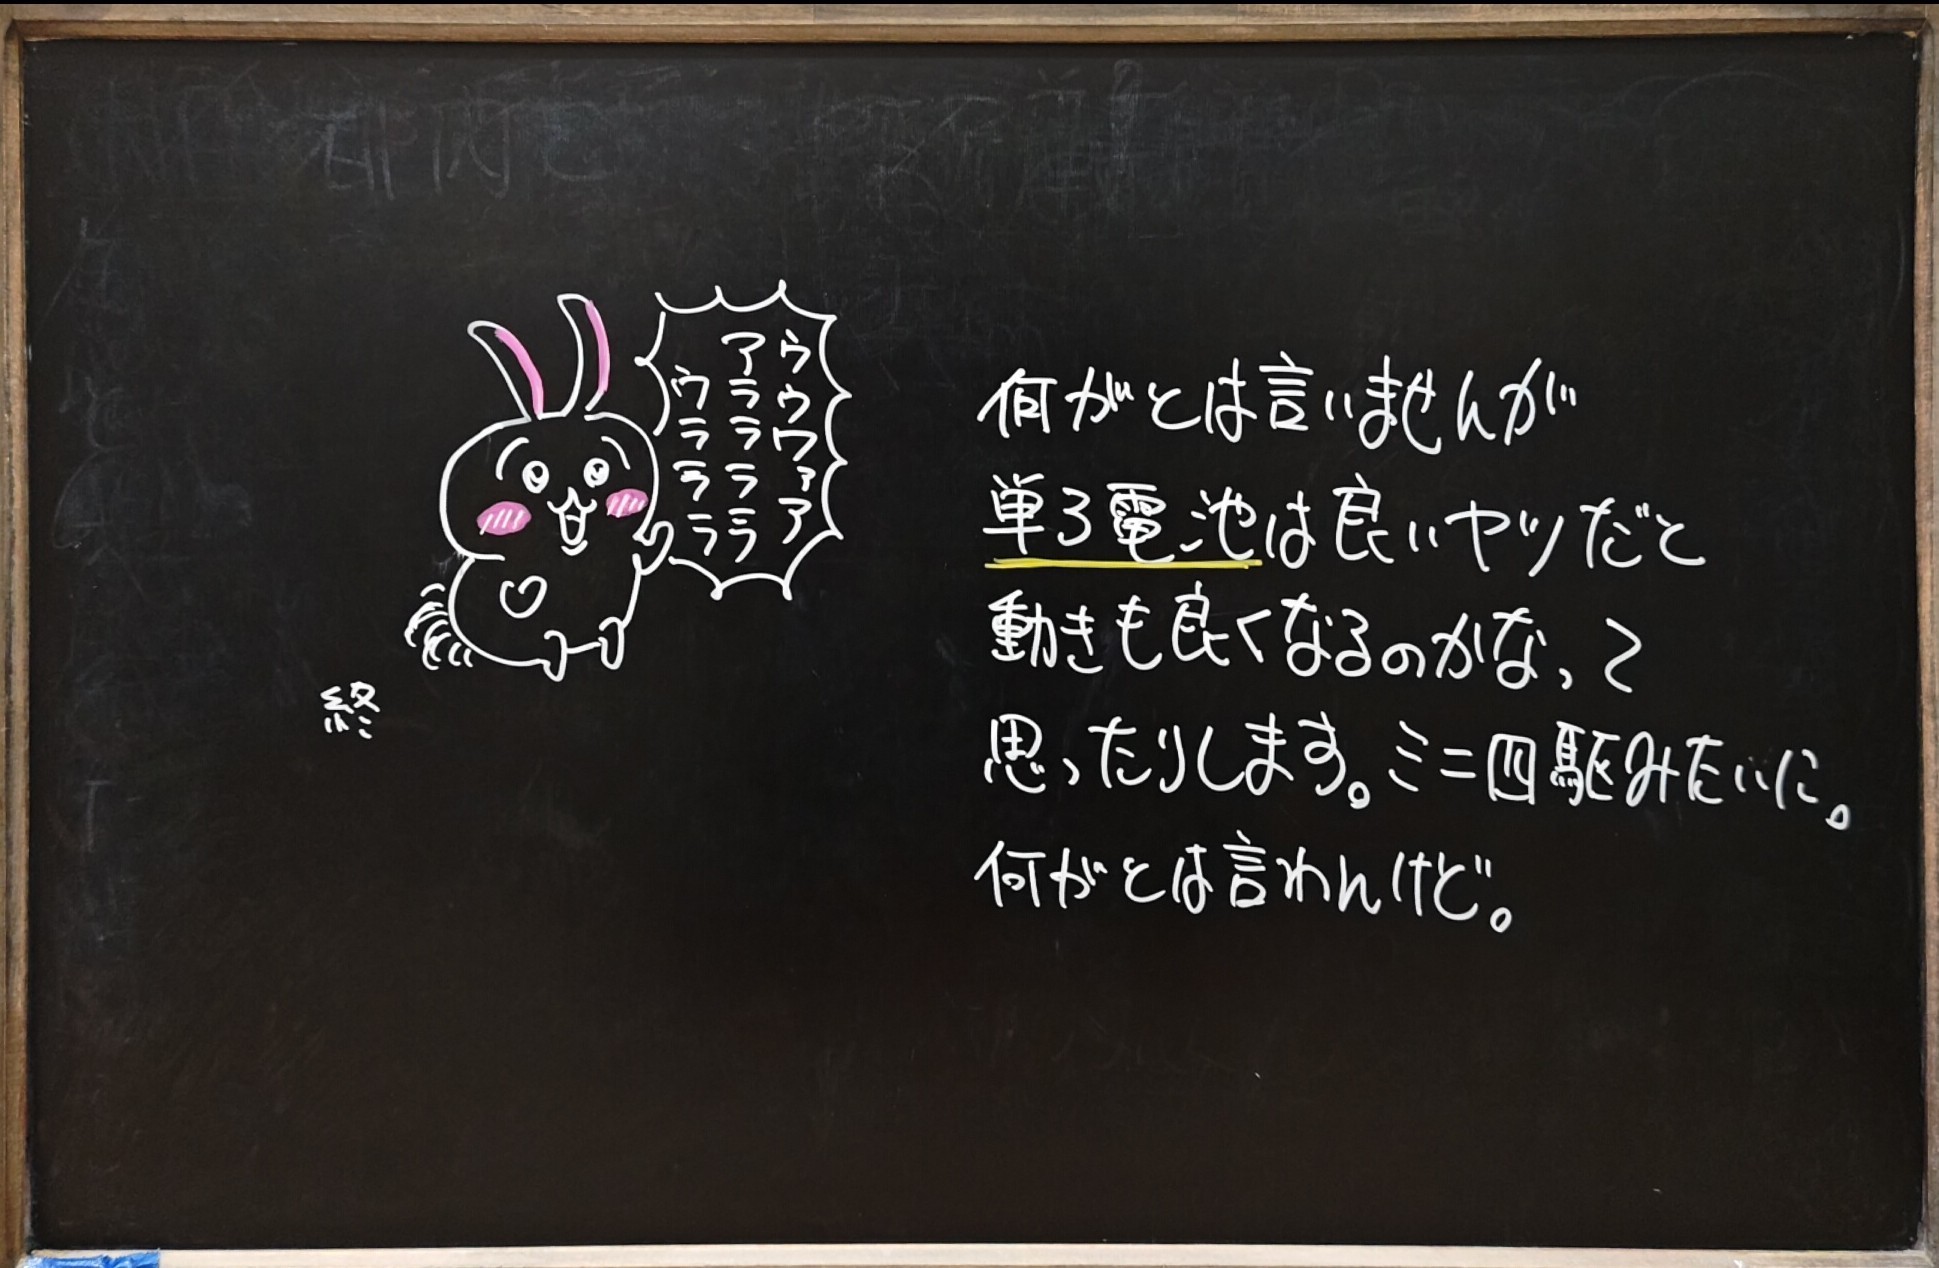 何がとは言いませんが
単3電池は良いヤツだと
動きも良くなるのかなって
思ったりします。ミニ四駆みたいに。
何がとは言わんけど。
ウウワァア
アララララ
ウララララ
終